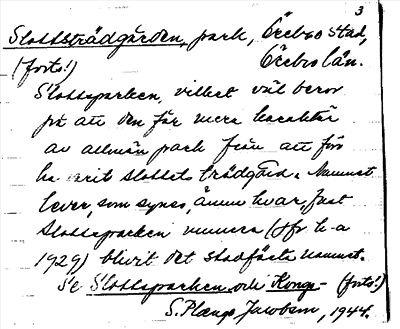 3
Slottsträdgården, park, Örebro stad,
(forts!) Örebro län.
Slottsparken, vilket väl beror
på att den får mera karaktär
av allmän park från att för
ha varit slottets trädgård. Namnet
lever, som synes, ännu kvar, fast
Slottsparken numera (jfr k-a
1929) blivit det stadfästa namnet.
Se Slottsparken och Kongs- (forts!)
S. Plænge Jacobson, 1944.